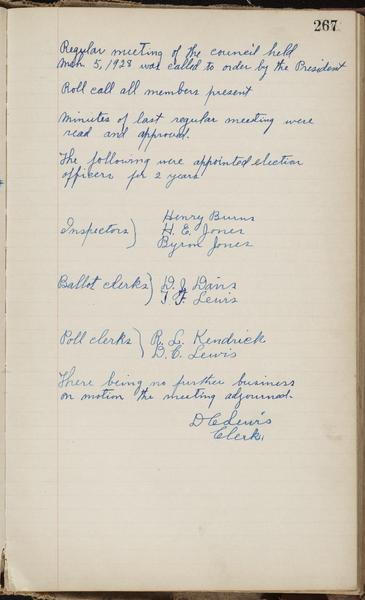 267
Regular meeting of the council held
Mch. 5, 1928 was called to order by the President
Roll call all members present
Minutes of last regular meeting were
read and approved.
The following were appointed election
officers for 2 years
Henry Burns
Inspectors } H. E. Jones
Byron Jones
Ballot clerks } D. J. Davis
T. F. Lewis
Poll clerks } R. L. Kendrick
D. C. Lewis
There being no further business
on motion the meeting adjourned.
D C Lewis
Clerk.